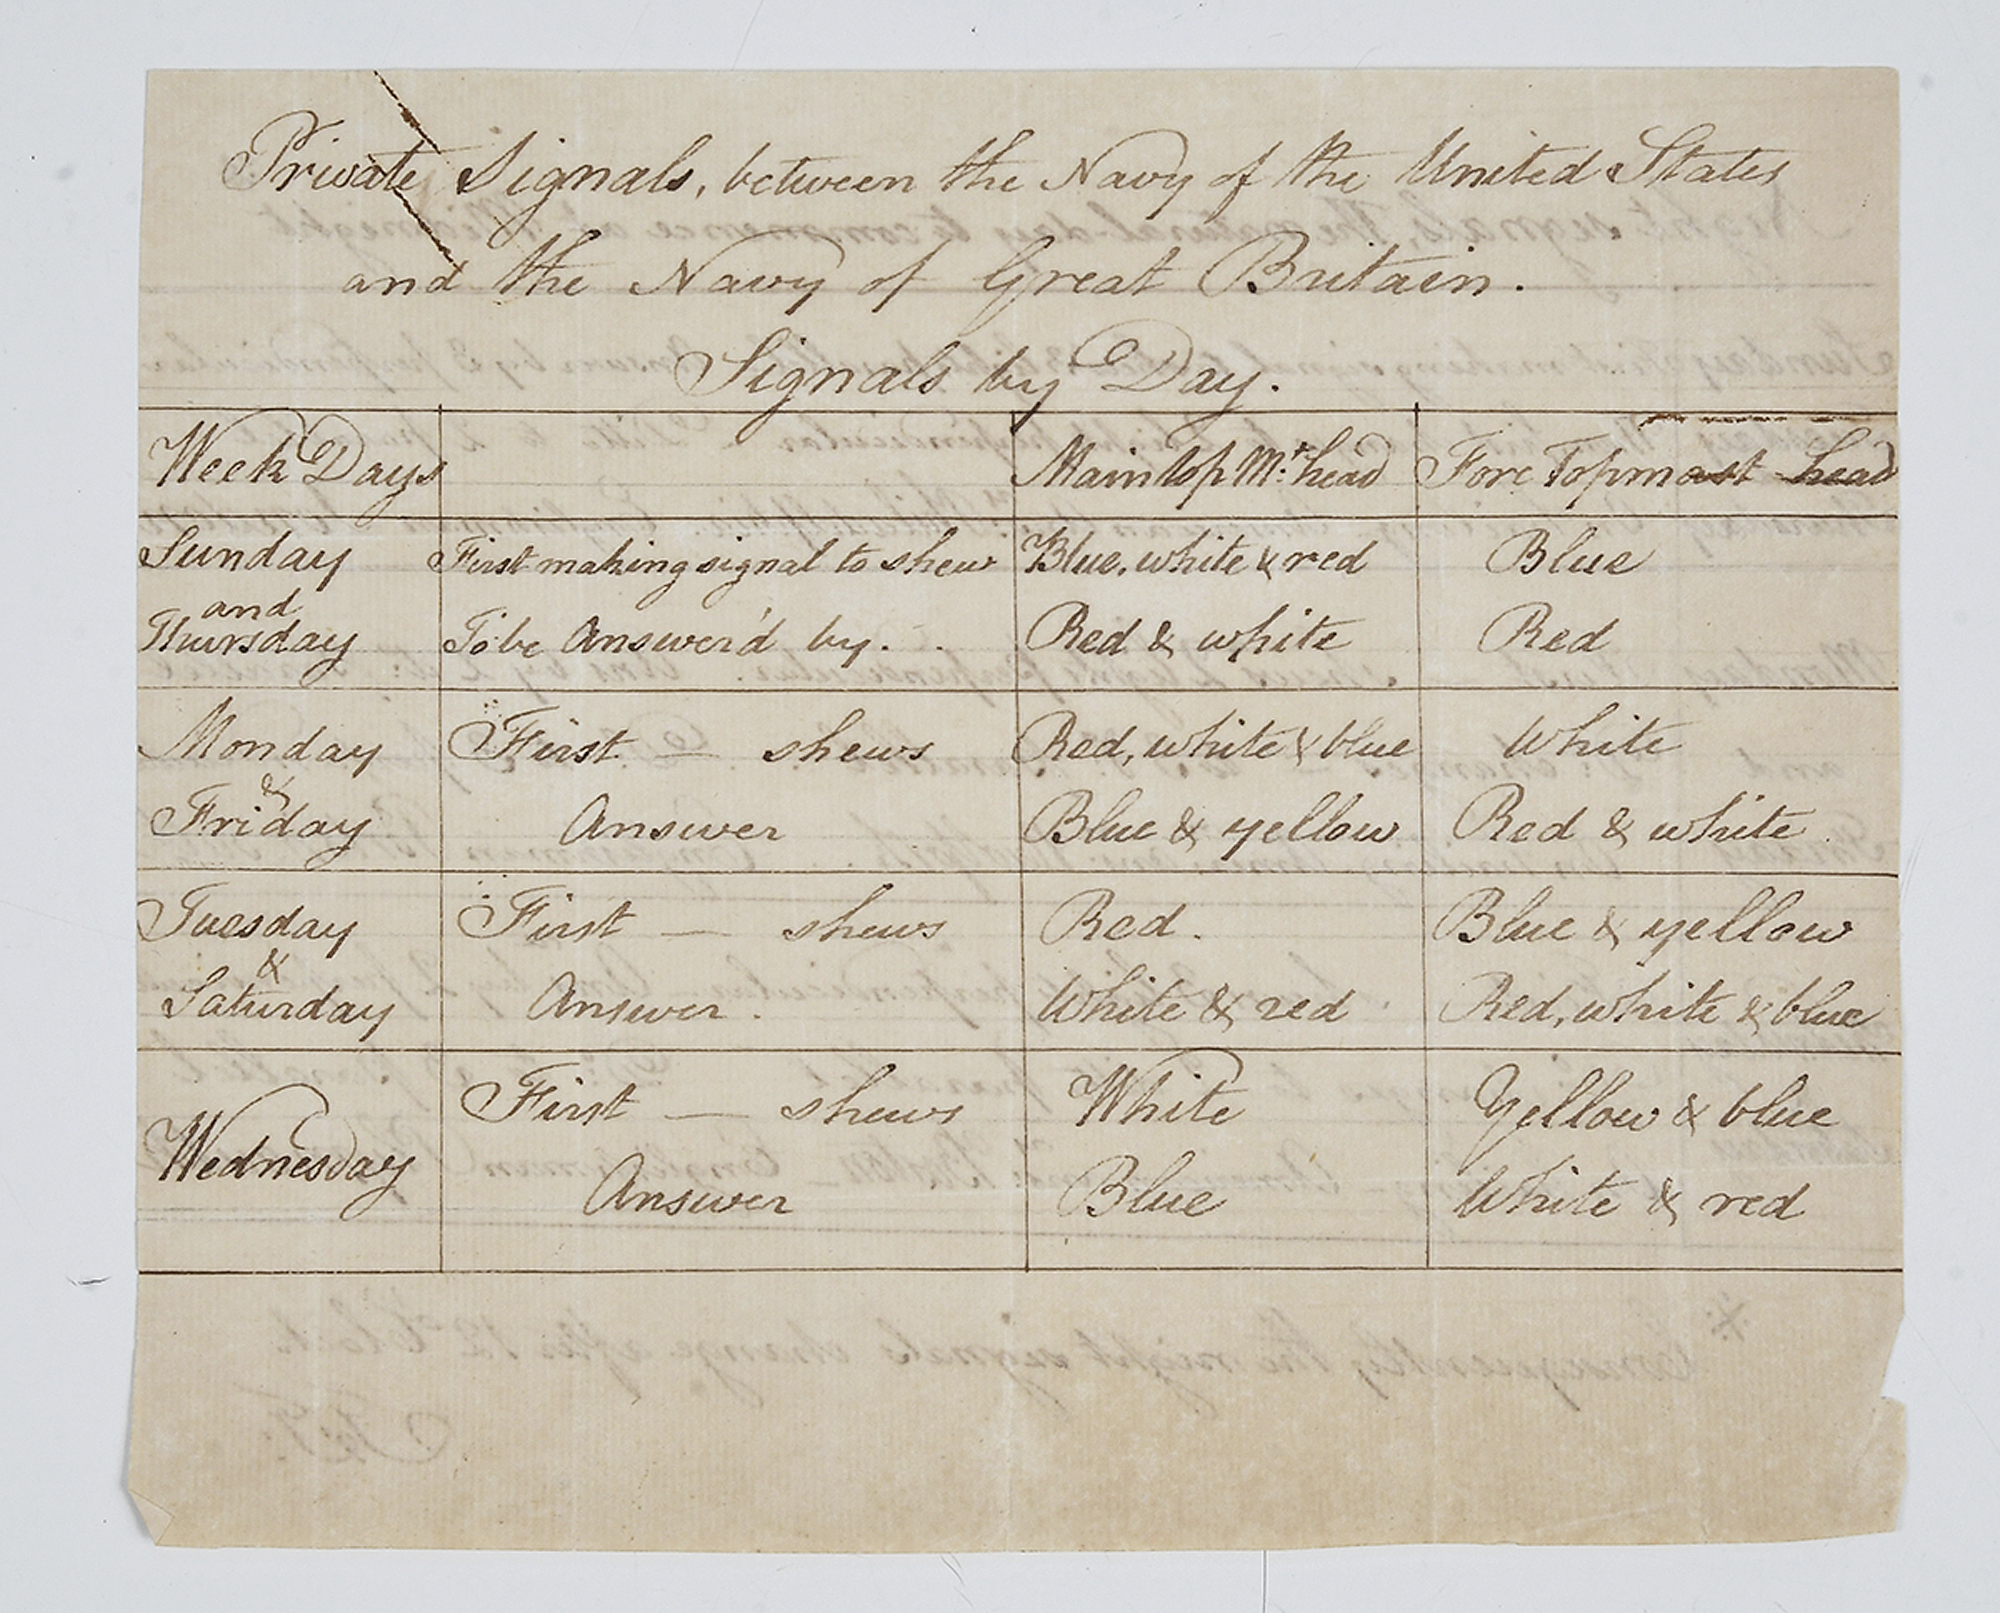 Private Signals, between the Navy of the United States
and the Navy of Great Britain.
Signals by Day.
Week Days Maintop Mt. head Fore Topmast head
Sunday First making signal to shew Blue, white & red Blue
and
Thursday To be Answer'd by. . Red & white Red
Monday First — shews Red, white & blue White
&
Friday Answer Blue & yellow Red & white
Tuesday First — shews Red. Blue & yellow
&
Saturday Answer. White & red Red, white & blue
First — shews White Yellow & blue
Wednesday
Answer Blue White & red